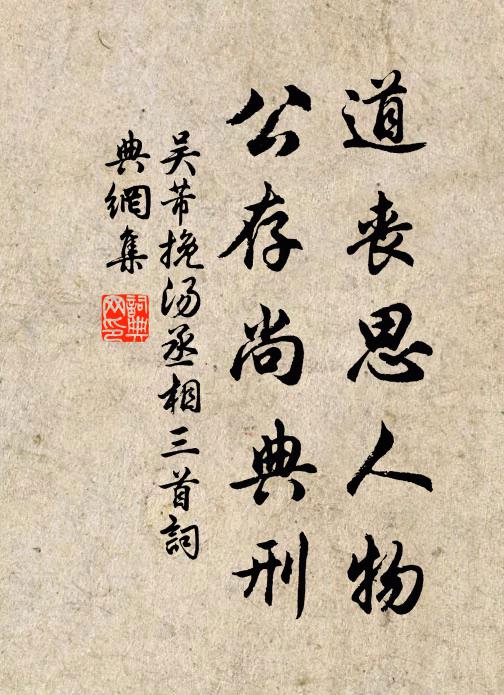 道丧思人物
公存尚典刑
吴芾挽汤丞相三首詞
典網集
詞典網印